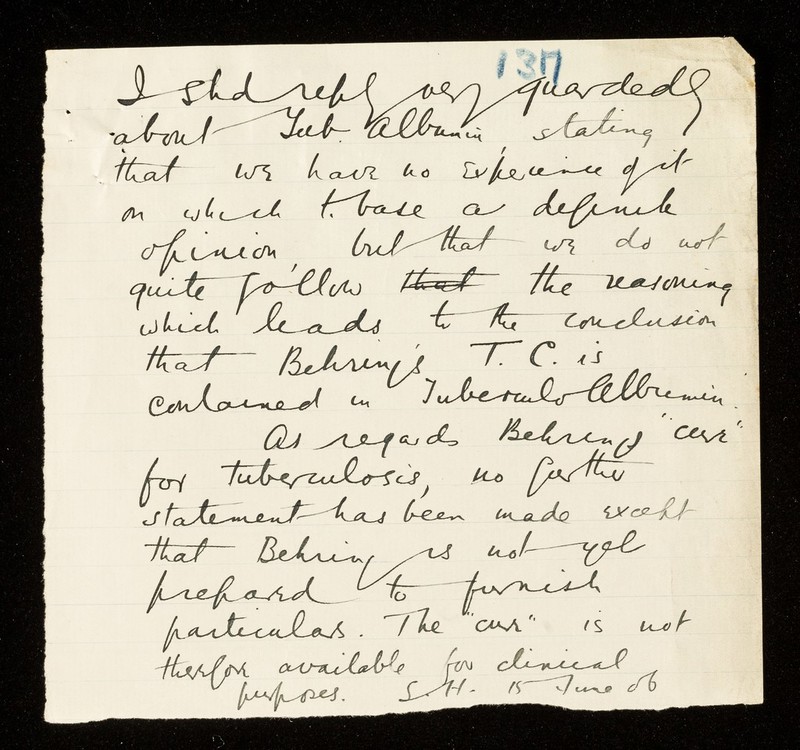 137
I shd reply very guardedly
about Tub. Albumin, stating
that we have no experience of it
on which t. base a definite
opinion, but that we do not
quite follow that the reasoning
which leads to the conclusion
that Behring's T. C. is
contained in Tuberculo Albumin.
As regards Behring's "cure"
for tuberculosis, no further
statement has been made except
that Behring is not yet
prepared to furnish
particulars. The "cure" is not
therefore available for clinical
purposes. S.H. 15 June 06